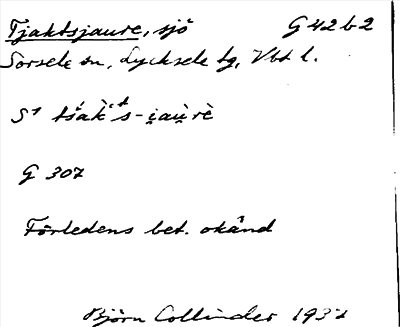 Tjaktsjaure, sjö G 42 b 2
Sorsele sn, Lycksele tg, Vbt l.
S1
G 307
Förledens bet. okänd
Björn Collinder 193